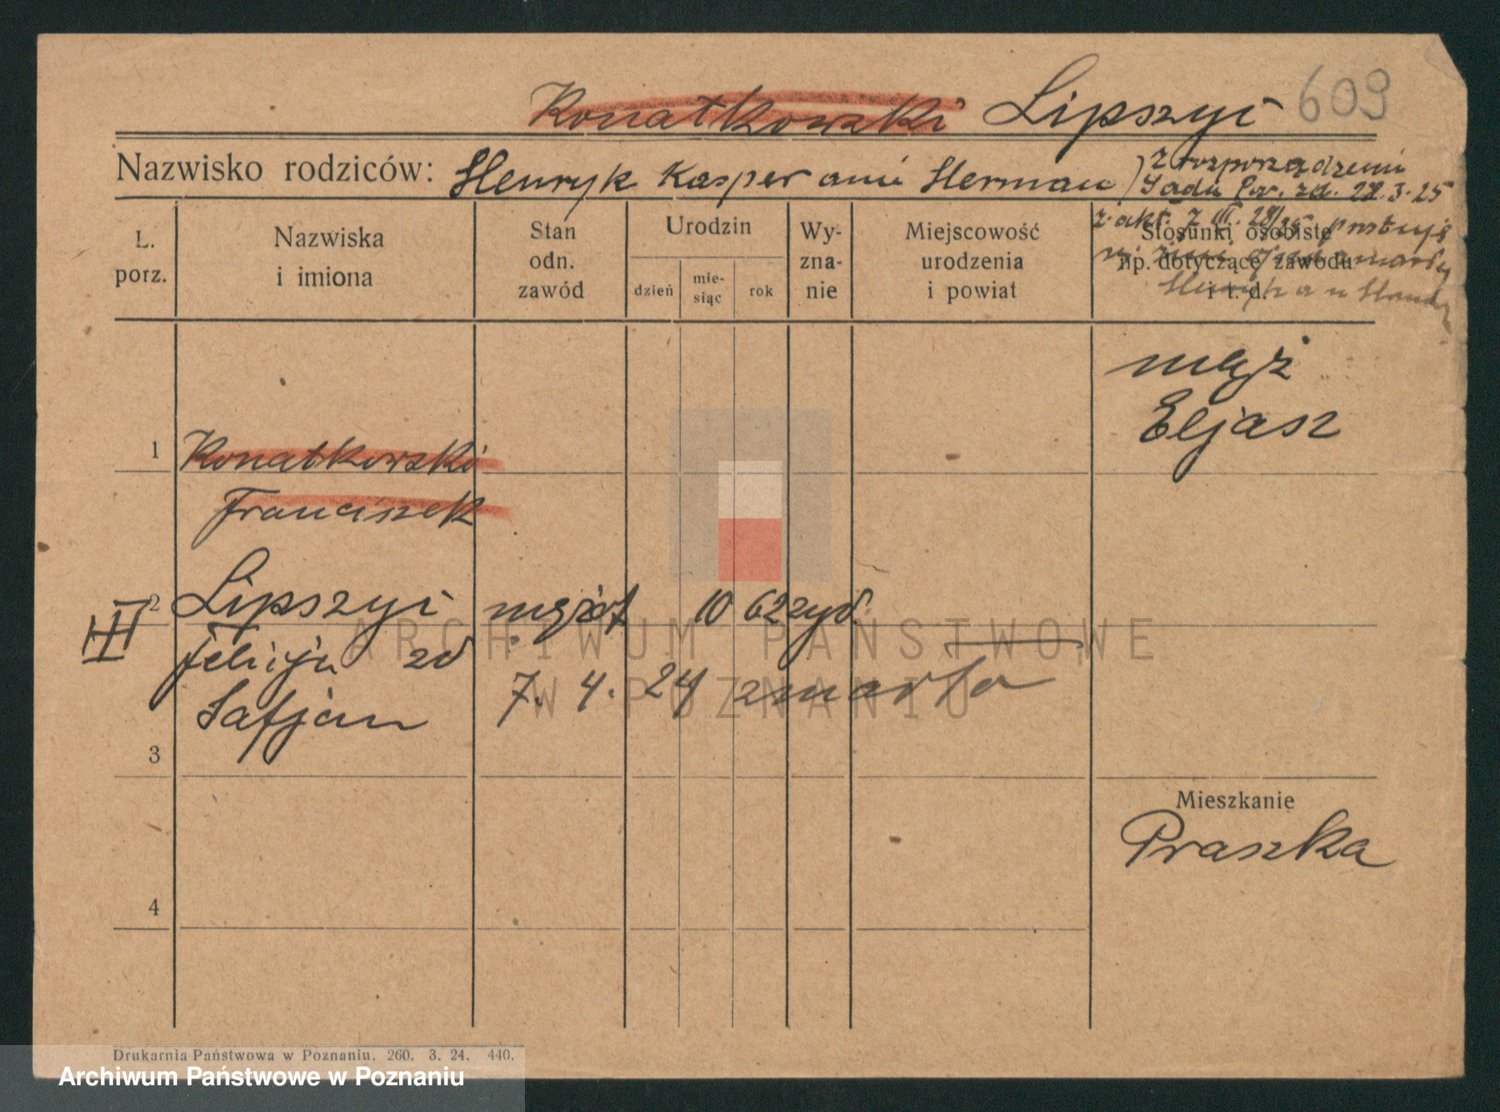 Konatkowski Lipszyc 609
Nazwisko rodziców: Henryk Kasper ani Herman) z rozporządzeniu
Sadu Pow. zd. 22.3.25
z. akt. 7 III. 28/25
L. porz.
Nazwiska
i imiona
Stan
odn.
zawód
Urodzin
dzień
mie-
siąc
rok
Wy-
zna-
nie
Miejscowość
urodzenia
i powiat
Stosunki osobiste
np. dotyczące zawodu
i t. d.
mąż
Eljasz
1 Konatkowski
Franciszek
2 Lipszyc 10 62 żyd.
III
Felicja zd
Safjan 7. 4. 24 zmarła
3
Mieszkanie
Praszka
4
ARCHIWUM PAŃSTWOWE
W POZNANIU
Drukarnia Państwowa w Poznaniu. 260. 3. 24. 440.
Archiwum Państwowe w Poznaniu